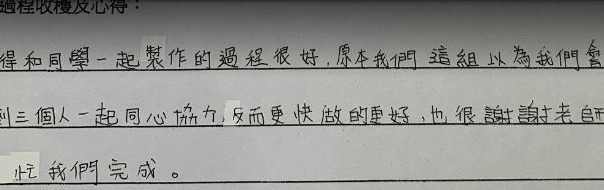 過程收穫及心得：
得和同學一起製作的過程很好,原本我們這組以為我們會
到三個人一起同心協力,反而更快做的更好,也很謝謝老師
忙我們完成。